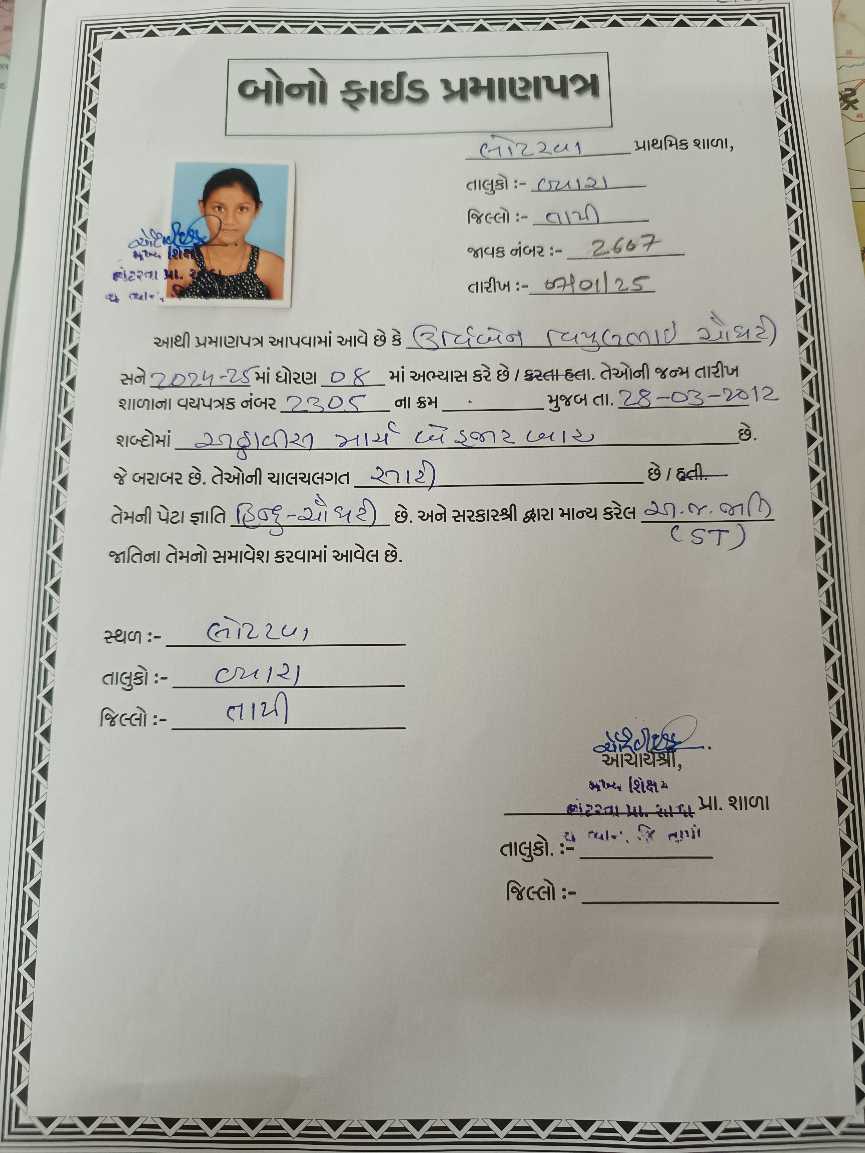 બોનો ફાઈડ પ્રમાણપત્ર
લોટરવા પ્રાથમિક શાળા,
તાલુકો :- વ્યારા
જિલ્લો :- તાપી
જાવક નંબર :- 2667
તારીખ :- /01/25
મુખ્ય શિક્ષક
લોટરવા પ્રા.
આથી પ્રમાણપત્ર આપવામાં આવે છે કે ઉર્વિબેન વિપુલભાઈ ચૌધરી
સને 2024-25માં ધોરણ 08 માં અભ્યાસ કરે છે / કરતા હતા. તેઓની જન્મ તારીખ
શાળાના વયપત્રક નંબર 2305 ના ક્રમ - મુજબ તા. 28-03-2012
શબ્દોમાં અઠ્ઠાવીસ માર્ચ બે હજાર બાર છે.
જે બરાબર છે. તેઓની ચાલચલગત સારી છે / હતી.
તેમની પેટા જ્ઞાતિ હિન્દુ-ચૌધરી છે. અને સરકારશ્રી દ્વારા માન્ય કરેલ અ.જ.જાતિ
(ST)
જાતિના તેમનો સમાવેશ કરવામાં આવેલ છે.
સ્થળ :- લોટરવા
તાલુકો :- વ્યારા
જિલ્લો :- તાપી
આચાર્યશ્રી,
મુખ્ય શિક્ષક
લોટરવા પ્રા. શાળા પ્રા. શાળા
તા. વ્યારા, જિ. તાપી
તાલુકો. :-
જિલ્લો :-